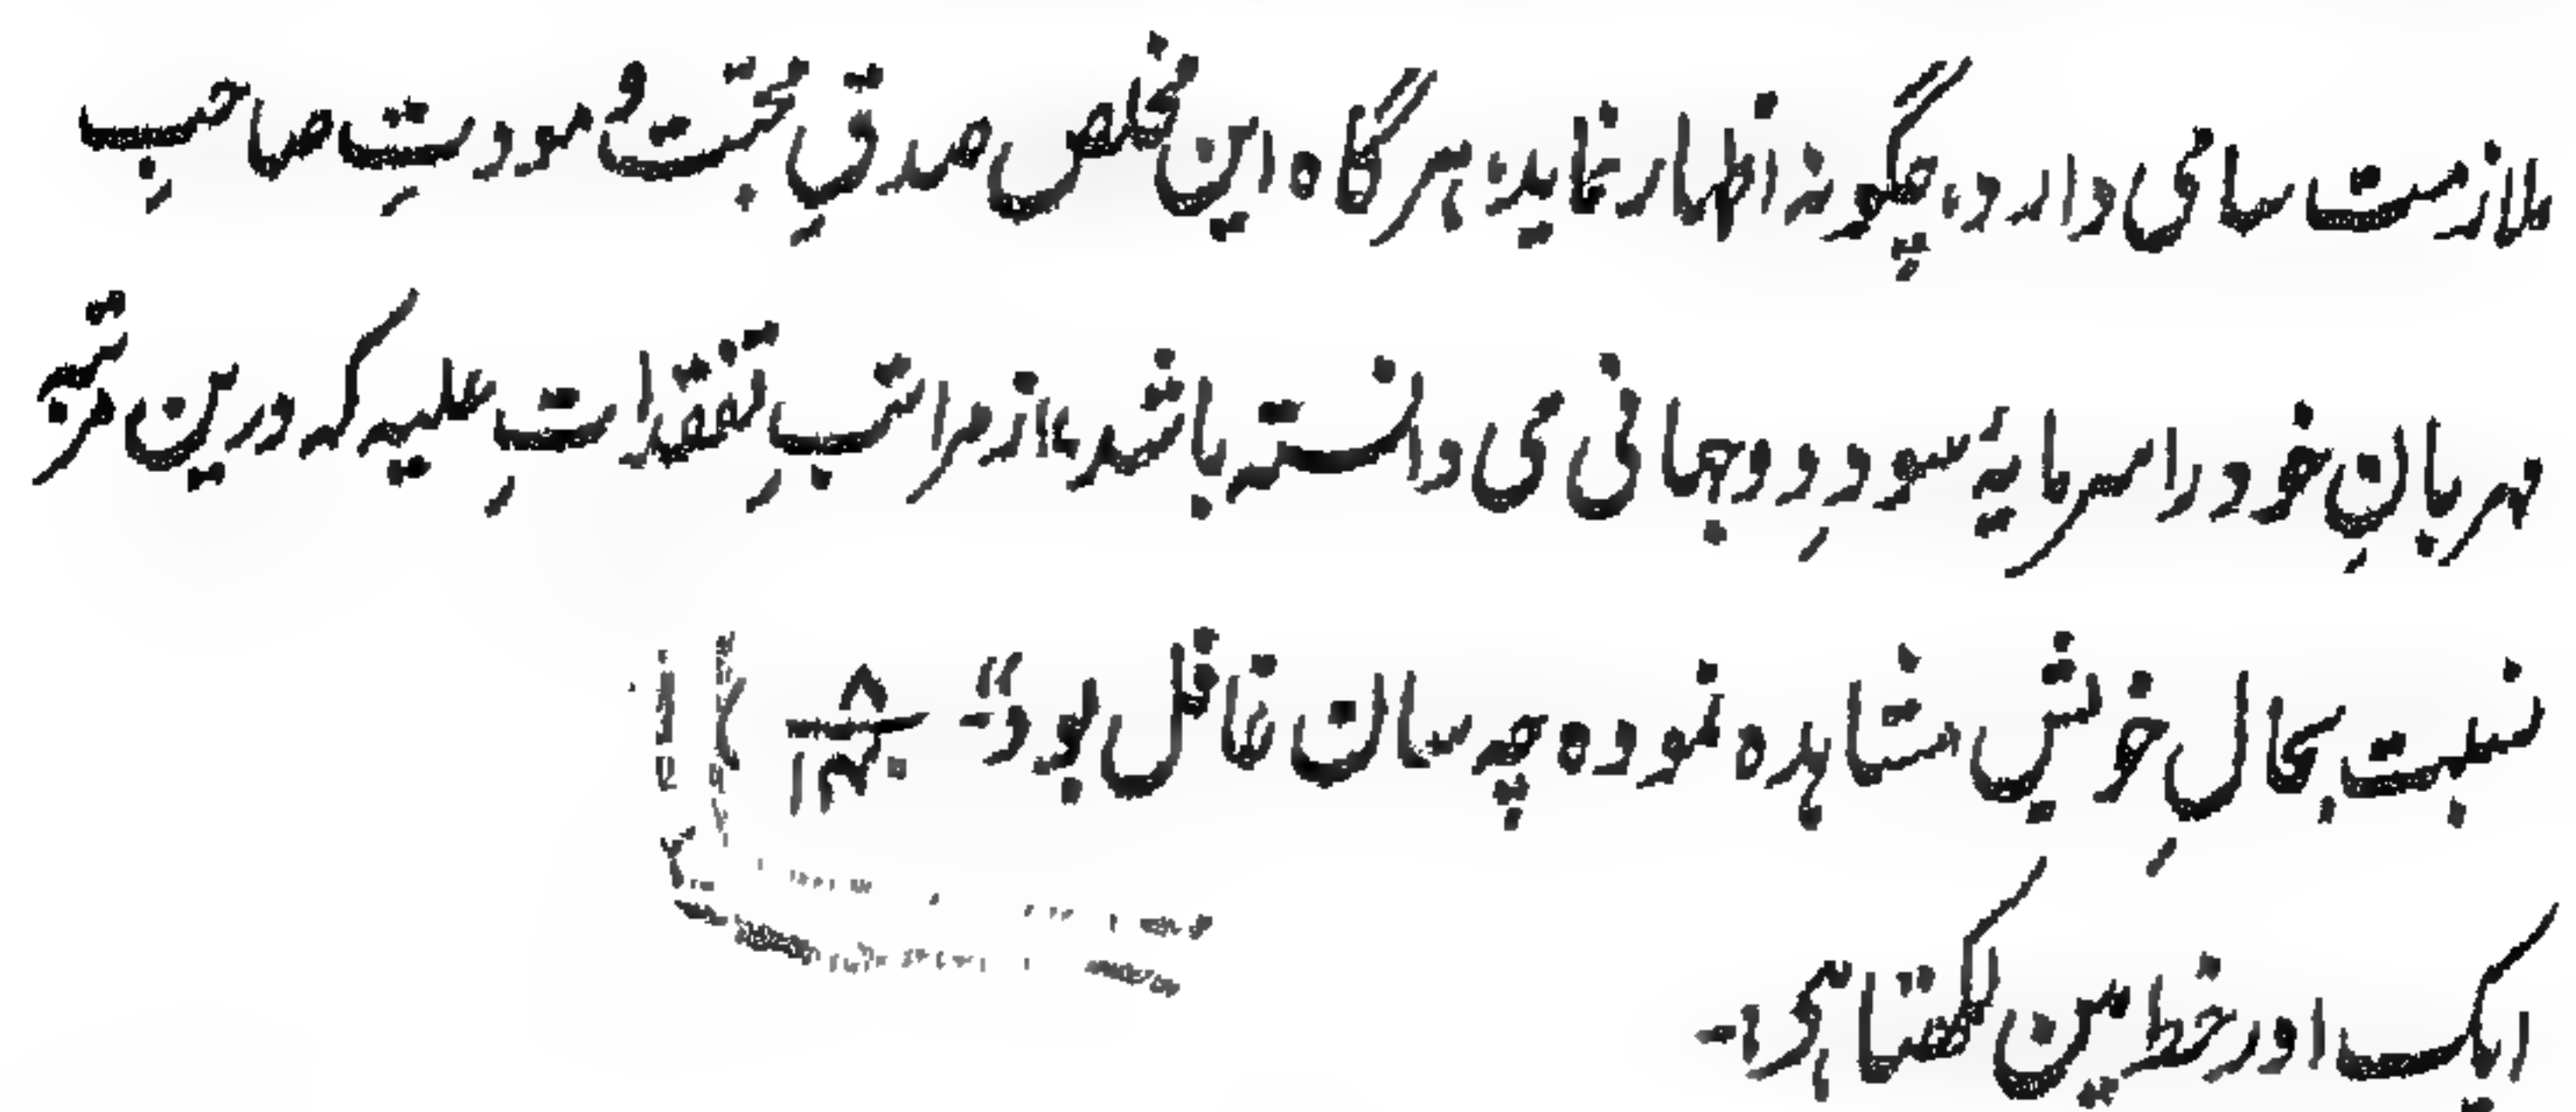 ملازمت سامی دارد، چگونہ اظہار نماید، ہرگاہ این مخلص صدقِ محبّت و مودتِ صاحبِ
مہربانِ خود را سرمایۂ سودِ دوجہانی می دانستہ باشد، از مراتبِ تفقداتِ علیہ کہ درین مرتبہ
نسبت بحالِ خویش مشاہدہ نمودہ چہ سان غافل بود"۔
ایک اور خط مین لکھتا ہی:۔